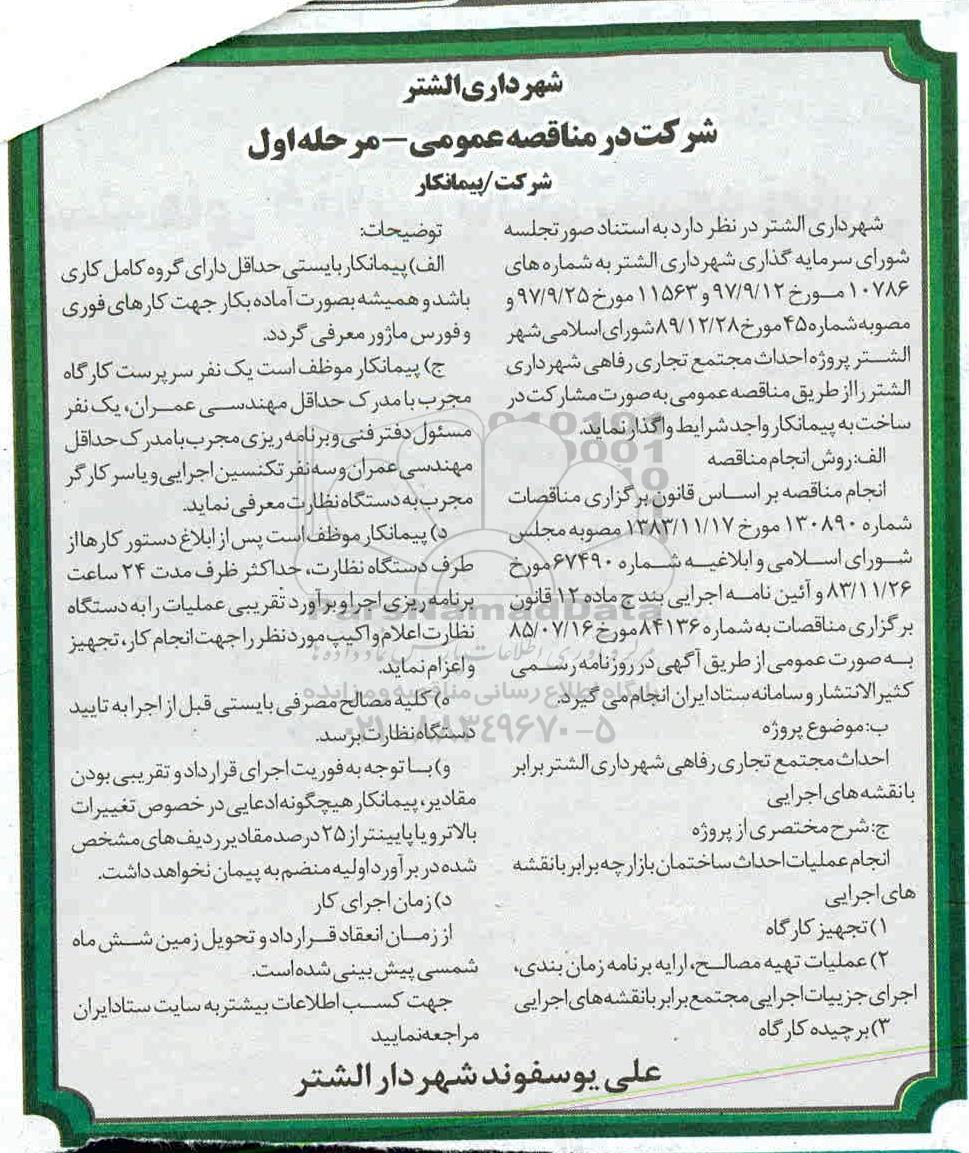 شهرداری الشتر
شرکت در مناقصه عمومی – مرحله اول
شرکت/پیمانکار
شهرداری الشتر در نظر دارد به استناد صورتجلسه
شورای سرمایه گذاری شهرداری الشتر به شماره های
۱۰۷۸۶ مورخ ۹۷/۹/۱۲ و ۱۱۵۶۳ مورخ ۹۷/۹/۲۵ و
مصوبه شماره ۴۵ مورخ ۸۹/۱۲/۲۸ شورای اسلامی شهر
الشتر پروژه احداث مجتمع تجاری رفاهی شهرداری
الشتر را از طریق مناقصه عمومی به صورت مشارکت در
ساخت به پیمانکار واجد شرایط واگذار نماید.
الف: روش انجام مناقصه
انجام مناقصه بر اساس قانون برگزاری مناقصات
شماره ۱۳۰۸۹۰ مورخ ۱۳۸۳/۱۱/۱۷ مصوبه مجلس
شورای اسلامی و ابلاغیه شماره ۶۷۴۹۰ مورخ
۸۳/۱۱/۲۶ و آئین نامه اجرایی بند ج ماده ۱۲ قانون
برگزاری مناقصات به شماره ۸۴۱۳۶ مورخ ۸۵/۰۷/۱۶
به صورت عمومی از طریق آگهی در روزنامه رسمی
کثیرالانتشار و سامانه ستاد ایران انجام می گیرد.
ب: موضوع پروژه
احداث مجتمع تجاری رفاهی شهرداری الشتر برابر
با نقشه های اجرایی
ج: شرح مختصری از پروژه
انجام عملیات احداث ساختمان بازارچه برابر با نقشه
های اجرایی
۱) تجهیز کارگاه
۲) عملیات تهیه مصالح، ارایه برنامه زمان بندی،
اجرای جزییات اجرایی مجتمع برابر با نقشه های اجرایی
۳) برچیده کارگاه
توضیحات:
الف) پیمانکار بایستی حداقل دارای گروه کامل کاری
باشد و همیشه بصورت آماده بکار جهت کارهای فوری
و فورس ماژور معرفی گردد.
ج) پیمانکار موظف است یک نفر سرپرست کارگاه
مجرب با مدرک حداقل مهندسی عمران، یک نفر
مسئول دفتر فنی و برنامه ریزی مجرب با مدرک حداقل
مهندسی عمران و سه نفر تکنسین اجرایی و یا سرکارگر
مجرب به دستگاه نظارت معرفی نماید.
د) پیمانکار موظف است پس از ابلاغ دستور کارها از
طرف دستگاه نظارت، حداکثر ظرف مدت ۲۴ ساعت
برنامه ریزی اجرا و برآورد تقریبی عملیات را به دستگاه
نظارت اعلام و اکیپ مورد نظر را جهت انجام کار، تجهیز
و اعزام نماید.
ه) کلیه مصالح مصرفی بایستی قبل از اجرا به تایید
دستگاه نظارت برسد.
و) با توجه به فوریت اجرای قرارداد و تقریبی بودن
مقادیر، پیمانکار هیچگونه ادعایی در خصوص تغییرات
بالاتر و یا پایینتر از ۲۵ درصد مقادیر ردیف های مشخص
شده در برآورد اولیه منضم به پیمان نخواهد داشت.
د) زمان اجرای کار
از زمان انعقاد قرارداد و تحویل زمین شش ماه
شمسی پیش بینی شده است.
جهت کسب اطلاعات بیشتر به سایت ستاد ایران
مراجعه نمایید
علی یوسفوند شهردار الشتر
ParsNamadData
پایگاه اطلاع رسانی مناقصه و مزایده
۰۲۱-۸۸۳۴۹۶۷۰-۵